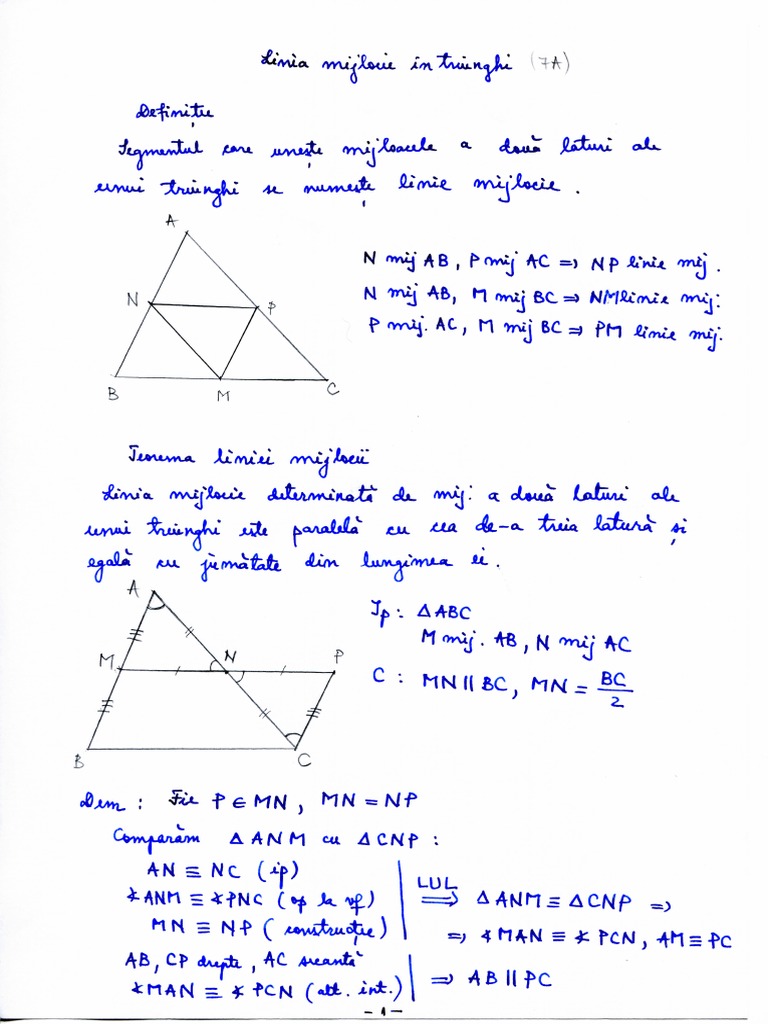 Linia mijlocie în triunghi (7A)
Definiție
Segmentul care unește mijloacele a două laturi ale
unui triunghi se numește linie mijlocie.
A
N
P
B
M
C
N mij AB, P mij AC => NP linie mij.
N mij AB, M mij BC => NM linie mij.
P mij. AC, M mij BC => PM linie mij.
Teorema liniei mijlocii
Linia mijlocie determinată de mij. a două laturi ale
unui triunghi este paralelă cu cea de-a treia latură și
egală cu jumătate din lungimea ei.
A
M
N
P
B
C
Ip: △ABC
M mij. AB, N mij AC
C: MN || BC, MN = BC/2
Dem: Fie P ∈ MN, MN = NP
Comparăm △ANM cu △CNP:
AN ≡ NC (ip)
∢ANM ≡ ∢PNC (op la vf)
MN ≡ NP (construcție)
LUL => △ANM ≡ △CNP =>
=> ∢MAN ≡ ∢PCN, AM ≡ PC
AB, CP drepte, AC secantă
∢MAN ≡ ∢PCN (alt. int.)
=> AB || PC
-1-